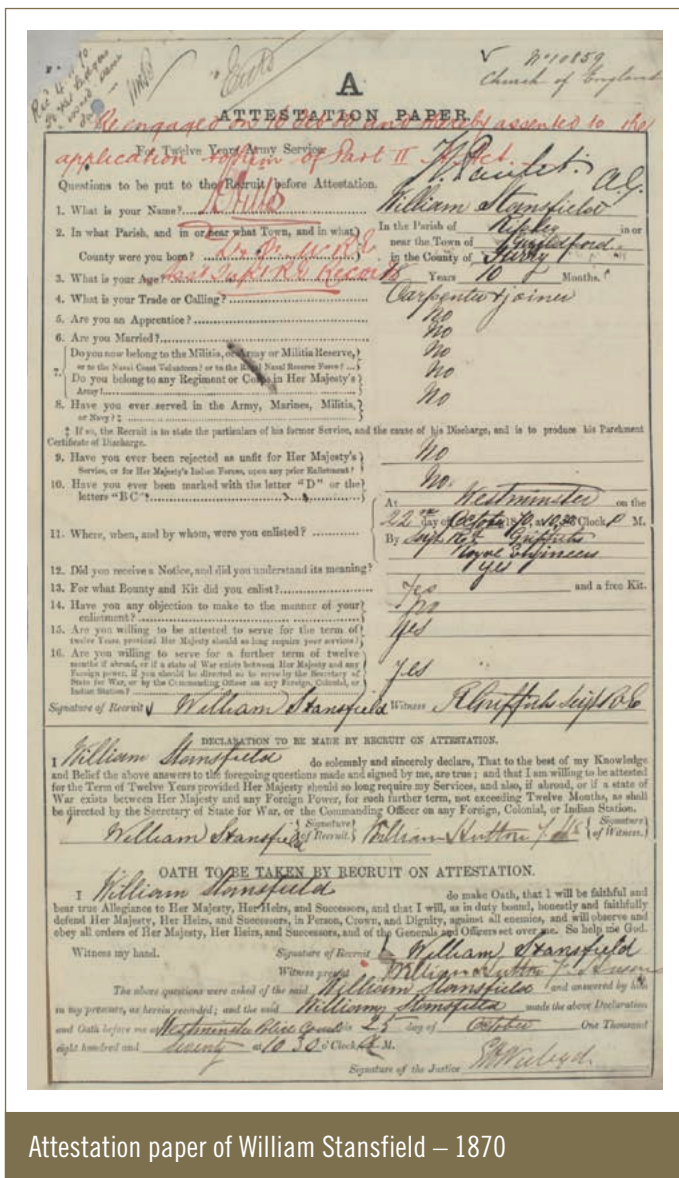 No 10859
Church of England
A
ATTESTATION PAPER.
Re engaged on and thereby assented to the
For Twelve Years Army Service.
application to him of Part II Act.
Questions to be put to the Recruit before Attestation.
1. What is your Name? William Stansfield
2. In what Parish, and in or near what Town, and in what County were you born? In the Parish of in or
near the Town of Guildford
in the County of Surry
3. What is your Age? 18 Years 10 Months.
4. What is your Trade or Calling? Carpenter & joiner
5. Are you an Apprentice? No
6. Are you Married? No
7. Do you now belong to the Militia, or Army or Militia Reserve, No
or to the Naval Coast Volunteers? or to the Royal Naval Reserve Force?
Do you belong to any Regiment or Corps in Her Majesty's No
Army?
8. Have you ever served in the Army, Marines, Militia, No
or Navy? ‡
‡ If so, the Recruit is to state the particulars of his former Service, and the cause of his Discharge, and is to produce his Parchment
Certificate of Discharge.
9. Have you ever been rejected as unfit for Her Majesty's No
Service, or for Her Majesty's Indian Forces, upon any prior Enlistment?
10. Have you ever been marked with the letter "D" or the No.
letters "BC"
11. Where, when, and by whom, were you enlisted? At Westminster on the
22nd day of October 1870, at 10.30 o'Clock M.
By Sergt R Griffiths
Royal Engineers
12. Did you receive a Notice, and did you understand its meaning? yes
13. For what Bounty and Kit did you enlist? and a free Kit.
14. Have you any objection to make to the manner of your no
enlistment?
15. Are you willing to be attested to serve for the term of Yes
twelve Years, provided Her Majesty should so long require your services?
16. Are you willing to serve for a further term of twelve yes
months if abroad, or if a state of War exists between Her Majesty and any
Foreign power, if you should be directed so to serve by the Secretary of
State for War, or by the Commanding Officer on any Foreign, Colonial, or
Indian Station?
Signature of Recruit William Stansfield Witness R Griffiths Sergt R.E
DECLARATION TO BE MADE BY RECRUIT ON ATTESTATION.
I William Stansfield do solemnly and sincerely declare, That to the best of my Knowledge
and Belief the above answers to the foregoing questions made and signed by me, are true; and that I am willing to be attested
for the Term of Twelve Years provided Her Majesty should so long require my Services, and also, if abroad, or if a state of
War exists between Her Majesty and any Foreign Power, for such further term, not exceeding Twelve Months, as shall
be directed by the Secretary of State for War, or the Commanding Officer on any Foreign, Colonial, or Indian Station.
William Stansfield Signature of Recruit. William Hutton Signature of Witness.
OATH TO BE TAKEN BY RECRUIT ON ATTESTATION.
I William Stansfield do make Oath, that I will be faithful and
bear true Allegiance to Her Majesty, Her Heirs, and Successors, and that I will, as in duty bound, honestly and faithfully
defend Her Majesty, Her Heirs, and Successors, in Person, Crown, and Dignity, against all enemies, and will observe and
obey all orders of Her Majesty, Her Heirs, and Successors, and of the Generals and Officers set over me. So help me God.
Witness my hand. Signature of Recruit William Stansfield
Witness present William Hutton
The above questions were asked of the said William Stansfield and answered by him
in my presence, as herein recorded; and the said William Stansfield made the above Declaration
and Oath before me at Westminster Police Court this 25 day of October One Thousand
eight hundred and seventy at 10 30 o'Clock A M.
Signature of the Justice
Attestation paper of William Stansfield – 1870